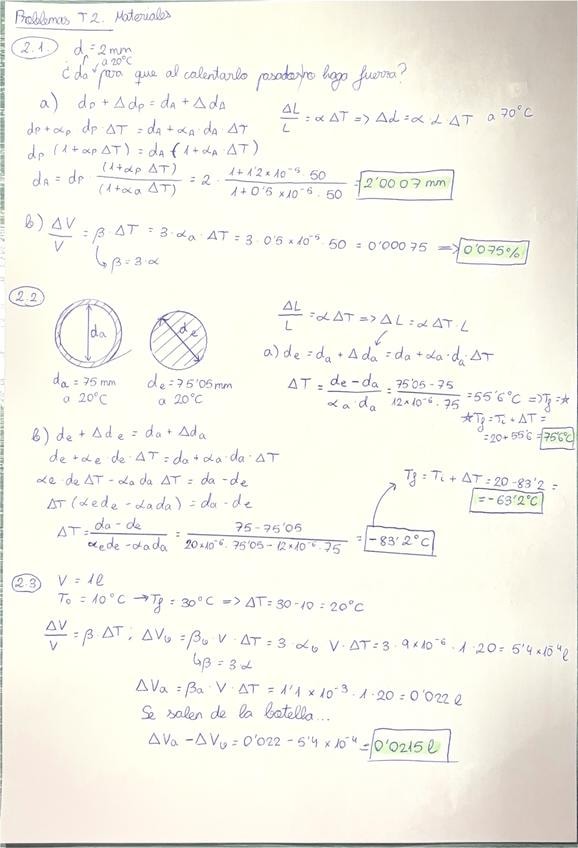 Problemas T2. Materiales
2.1. d = 2mm
a 20°C
¿da para que al calentarlo pasador no haga fuerza?
a) dp + Δdp = dA + ΔdA
ΔL/L = α ΔT => Δd = α·L·ΔT a 70°C
dp + αp dp·ΔT = dA + αA·dA·ΔT
dp (1+αpΔT) = dA (1+αAΔT)
dA = dp · (1+αpΔT)/(1+αaΔT) = 2 · 1+1'2×10⁻⁵·50/1+0'5×10⁻⁵·50 = 2'0007 mm
b) ΔV/V = β·ΔT = 3·αa·ΔT = 3·0'5×10⁻⁵·50 = 0'00075 => 0'075%
↳ β = 3·α
2.2
da
de
ΔL/L = αΔT => ΔL = αΔT·L
da = 75mm
a 20°C
de = 75'05mm
a 20°C
a) de = da + Δda = da + αa·da·ΔT
ΔT = de - da/αa·da = 75'05 - 75/12×10⁻⁶·75 = 55'6°C => Tf = *
* Tf = Ti + ΔT =
= 20 + 55'6 = 75'6°C
b) de + Δde = da + Δda
de + αe de·ΔT = da + αa·da·ΔT
αe·deΔT - αadaΔT = da - de
ΔT (αede - αada) = da - de
ΔT = da - de/αede - αada = 75 - 75'05/20×10⁻⁶·75'05 - 12×10⁻⁶·75 = -83'2°C
Tf = Ti + ΔT = 20 - 83'2 =
= -63'2°C
2.3 V = 1l
To = 10°C → Tf = 30°C => ΔT = 30 - 10 = 20°C
ΔV/V = β·ΔT; ΔVv = βv·V·ΔT = 3·αv V·ΔT = 3·9×10⁻⁶·1·20 = 5'4×10⁻⁴l
↳ β = 3α
ΔVa = βa·V·ΔT = 1'1×10⁻³·1·20 = 0'022l
Se salen de la botella...
ΔVa - ΔVv = 0'022 - 5'4×10⁻⁴ = 0'0215l